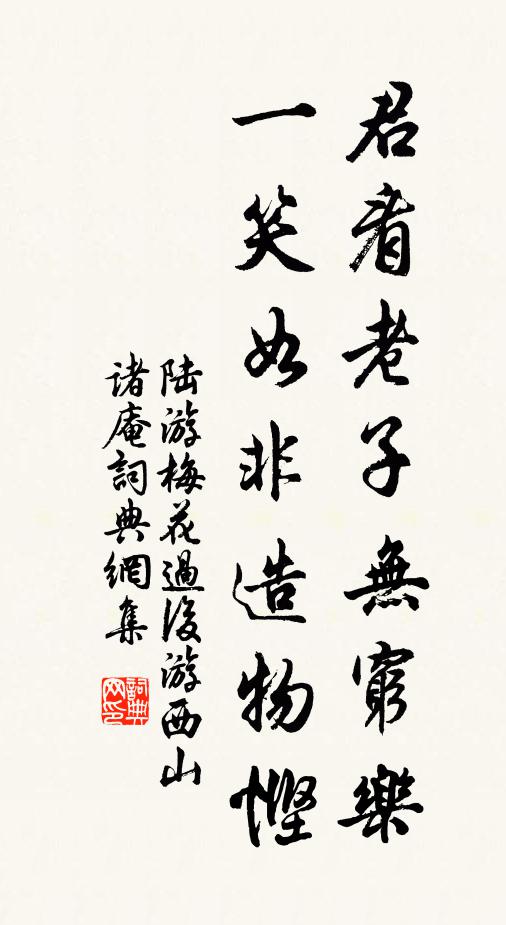 君看老子無窮樂
一笑如非造物慳
陆游梅花過後游西山
诸庵詞典網集
詞典网印